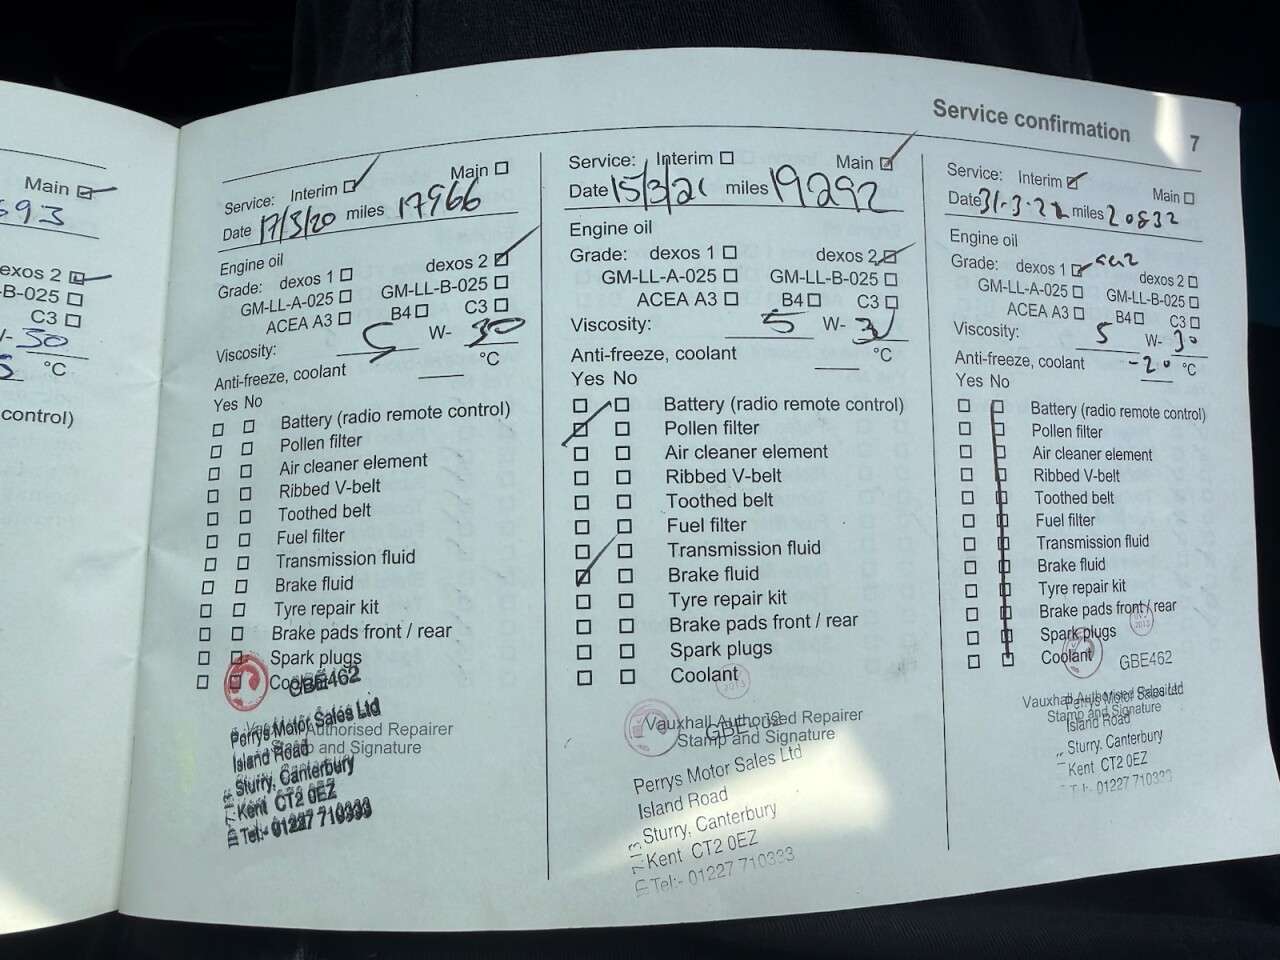 Service confirmation 7
Main
693
dexos 2
GM-LL-B-025
C3
W- 30
°C
control)
Service: Interim Main
Date 17/3/20 miles 17966
Engine oil
Grade: dexos 1 dexos 2
GM-LL-A-025 GM-LL-B-025
ACEA A3 B4 C3
Viscosity: 5 W- 30
Anti-freeze, coolant °C
Yes No
Battery (radio remote control)
Pollen filter
Air cleaner element
Ribbed V-belt
Toothed belt
Fuel filter
Transmission fluid
Brake fluid
Tyre repair kit
Brake pads front / rear
Spark plugs
Coolant
GBE462
Vauxhall Authorised Repairer
Stamp and Signature
Perrys Motor Sales Ltd
Island Road
Sturry, Canterbury
Kent CT2 0EZ
Tel:- 01227 710333
Service: Interim Main
Date 15/3/21 miles 19292
Engine oil
Grade: dexos 1 dexos 2
GM-LL-A-025 GM-LL-B-025
ACEA A3 B4 C3
Viscosity: 5 W- 30
Anti-freeze, coolant °C
Yes No
Battery (radio remote control)
Pollen filter
Air cleaner element
Ribbed V-belt
Toothed belt
Fuel filter
Transmission fluid
Brake fluid
Tyre repair kit
Brake pads front / rear
Spark plugs
Coolant
Vauxhall Authorised Repairer
Stamp and Signature
Perrys Motor Sales Ltd
Island Road
Sturry, Canterbury
Kent CT2 0EZ
Tel:- 01227 710333
Service: Interim Main
Date 31-3-22 miles 20832
Engine oil
Grade: dexos 1 dexos 2
GM-LL-A-025 GM-LL-B-025
ACEA A3 B4 C3
Viscosity: 5 W- 30
Anti-freeze, coolant -20 °C
Yes No
Battery (radio remote control)
Pollen filter
Air cleaner element
Ribbed V-belt
Toothed belt
Fuel filter
Transmission fluid
Brake fluid
Tyre repair kit
Brake pads front / rear
Spark plugs
Coolant
GBE462
Vauxhall Authorised Repairer
Stamp and Signature
Perrys Motor Sales Ltd
Island Road
Sturry, Canterbury
Kent CT2 0EZ
01227 710333